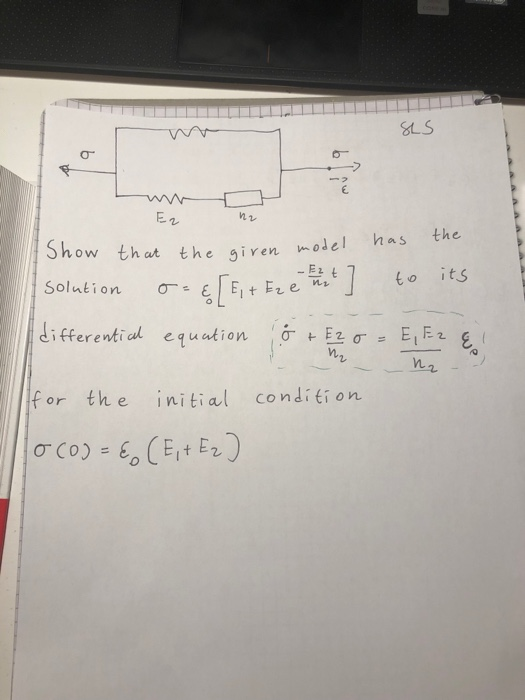 SLS
σ σ
→ ε
E2 n2
Show that the given model has the
Solution σ = ε0 [E1 + E2 e^(-E2/n2 t)] to its
differential equation σ̇ + E2/n2 σ = E1E2/n2 ε0
for the initial condition
σ(0) = ε0 (E1 + E2)